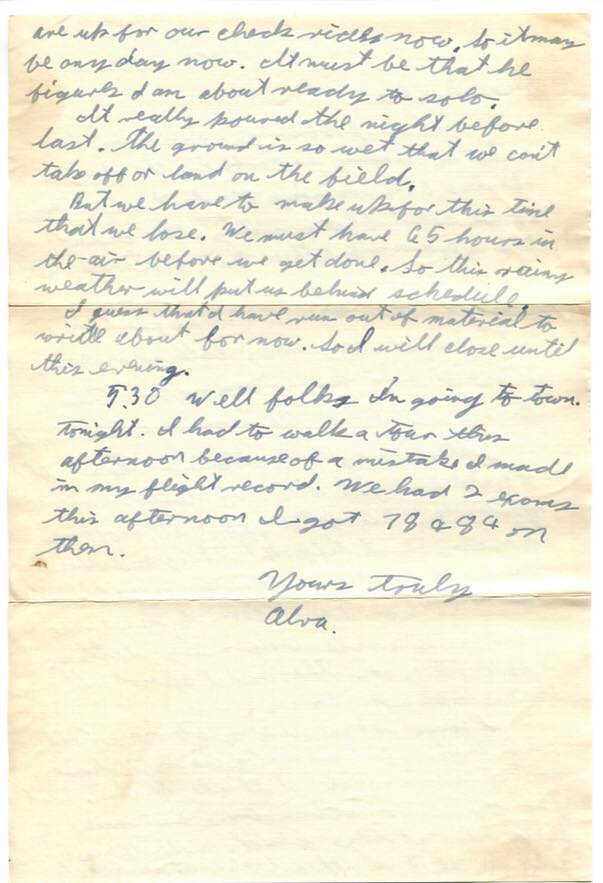 are up for our check rides now. So it may
be any day now. It must be that he
figures I am about ready to solo.
It really poured the night before
last. The ground is so wet that we can't
take off or land on the field.
But we have to make up for this time
that we lose. We must have 65 hours in
the air before we get done. So this rainy
weather will put us behind schedule.
I guess that I have run out of material to
write about for now. So I will close until
this evening.
5:30 Well folks I'm going to town.
tonight. I had to walk a tour this
afternoon because of a mistake I made
in my flight record. We had 2 exams
this afternoon I got 78 & 84 on
them.
Yours truly
Alva.